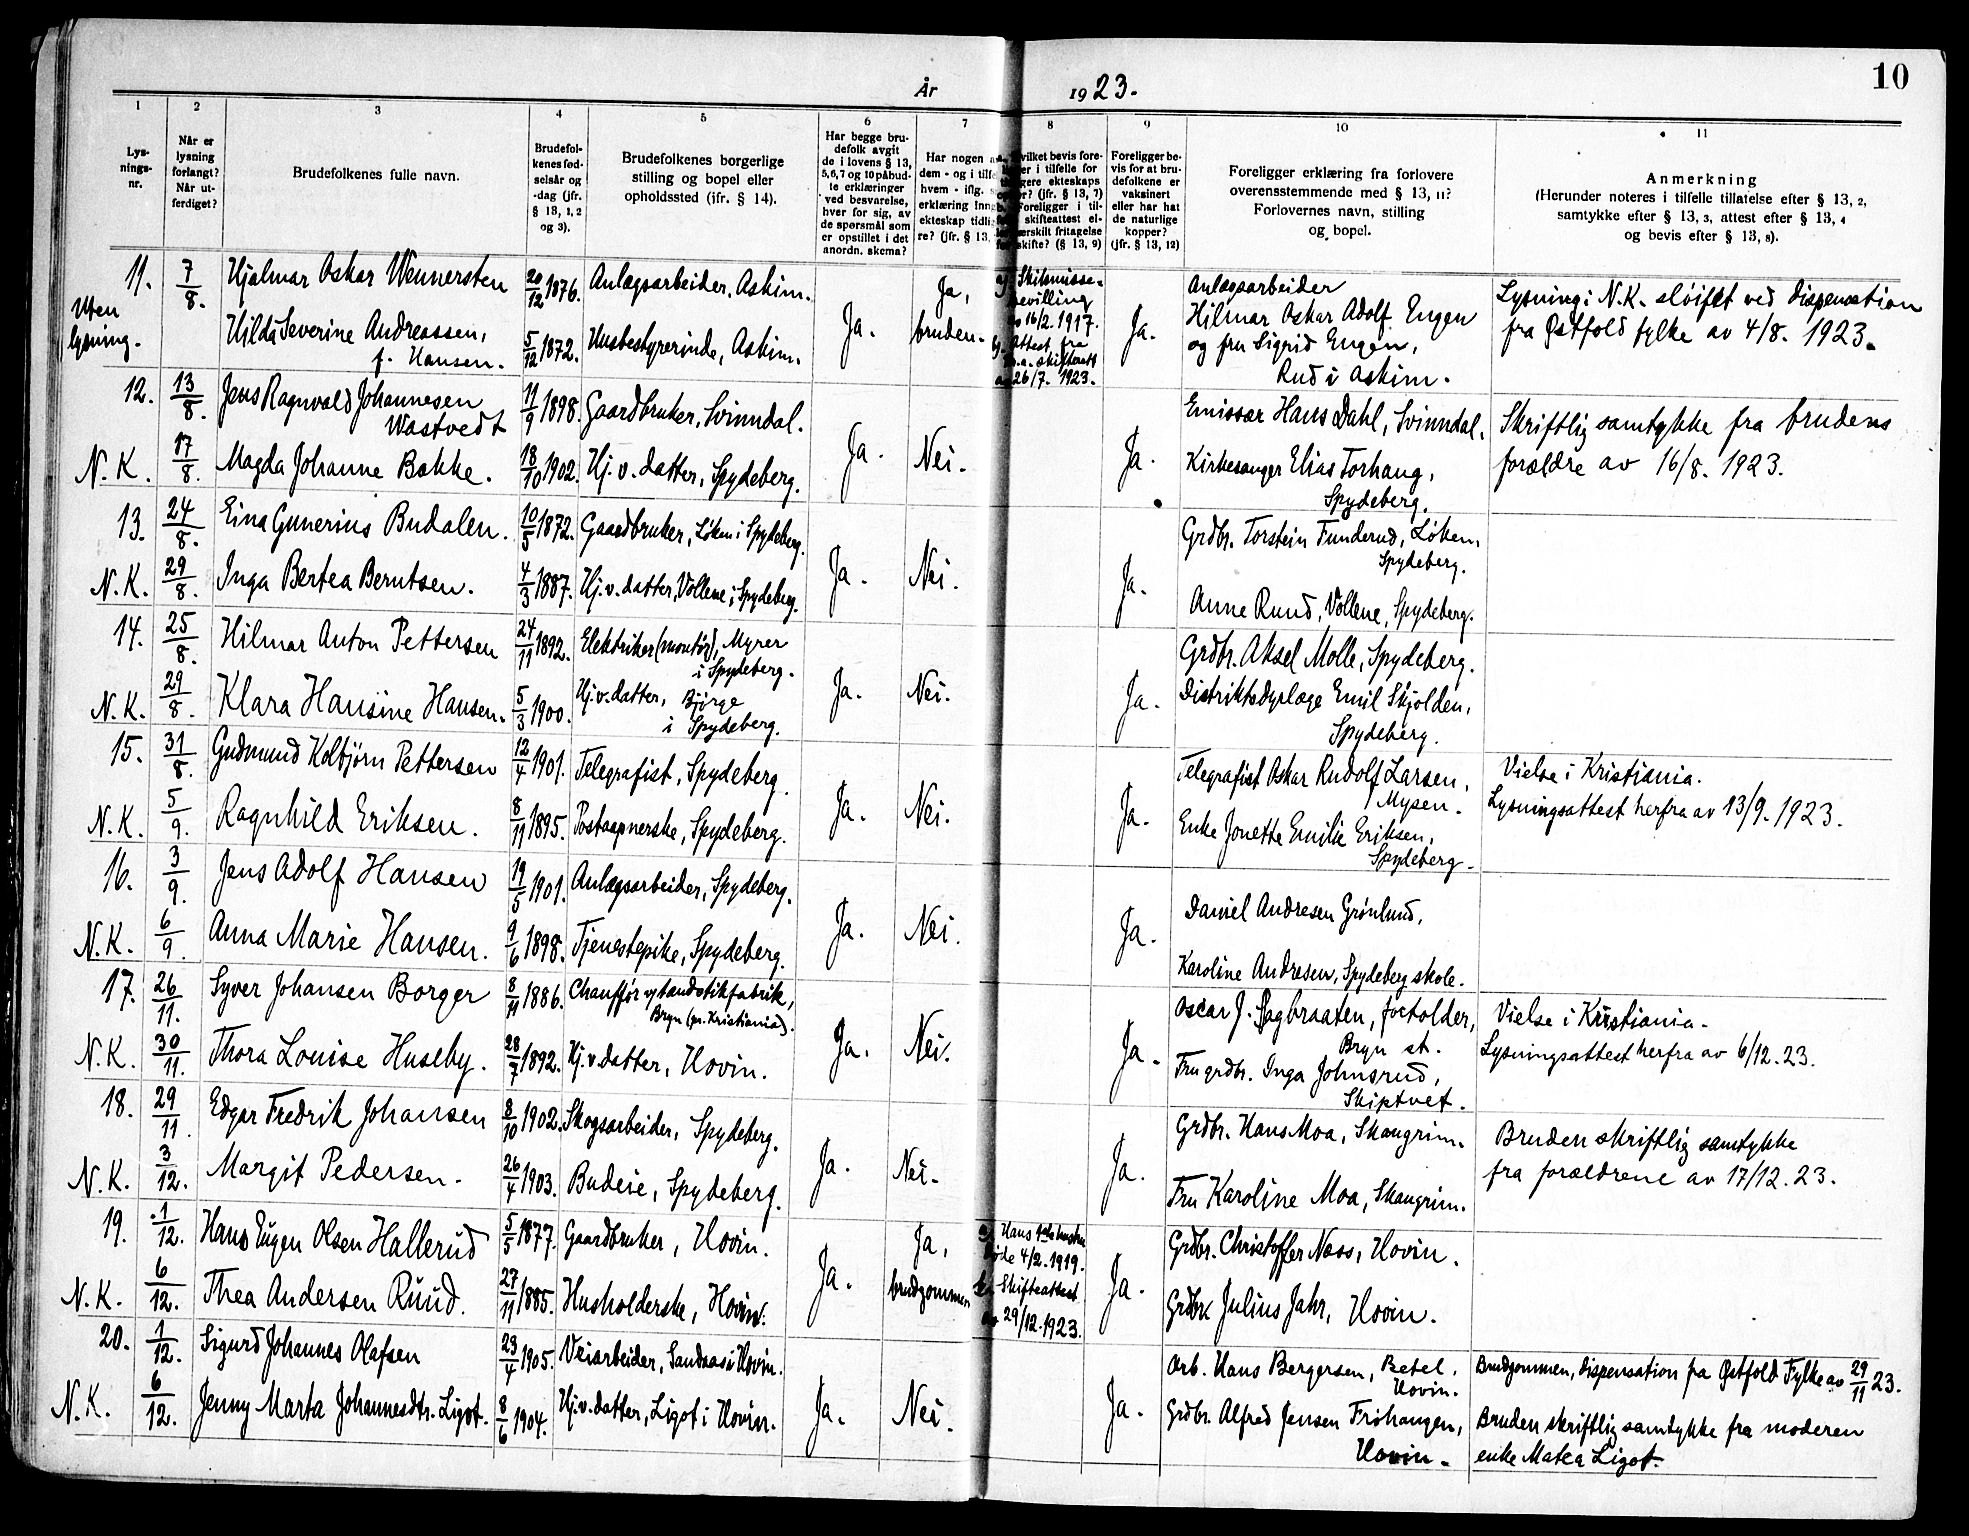 10
År 1923.
1
2
3
4
5
6
7
8
9
10
11
Lys-
nings-
nr.
Når er
lysning
forlangt?
Når ut-
ferdiget?
Brudefolkenes fulle navn.
Brudefol-
kenes fød-
selsår og
-dag (jfr.
§ 13, 1, 2
og 3).
Brudefolkenes borgerlige
stilling og bopel eller
opholdssted (ifr. § 14).
Har begge bru-
defolk avgit
de i lovens § 13,
5, 6, 7 og 10 påbud-
te erklæringer
ved besvarelse,
hver for sig, av
de spørsmål som
er opstillet i det
anordn. skema?
Har nogen
dem - og i tilf
hvem - iflg.
erklæring inng
ekteskap tidli
re? (jfr. § 13,
vilket bevis fore-
er i tilfelle for
gere ekteskaps
r? (jfr. § 13, 7)
Foreligger i til-
skifteattest el-
ærskilt fritagelse
skifte? (§ 13, 9)
Foreligger be-
vis for at bru-
defolkene er
vaksinert
eller har hat
de naturlige
kopper?
(jfr. § 13, 12)
Foreligger erklæring fra forlovere
overensstemmende med § 13, 11?
Forlovernes navn, stilling
og bopel.
Anmerkning
(Herunder noteres i tilfelle tillatelse efter § 13, 2,
samtykke efter § 13, 3, attest efter § 13, 4
og bevis efter § 13, 8).
11. 7/8. Hjalmar Oskar Wennersten 20/12 1876. Anlægsarbeider, Askim.
Uten lysning.
Hilda Severine Andreassen,
f. Hansen. 5/12 1872. Husbestyrerinde, Askim.
Ja. Ja, bruden.
a) Skilsmisse-
bevilling
av 16/2. 1917.
b) Attest fra
skifterett
av 26/7. 1923.
Ja.
Anlægsarbeider
Hilmar Oskar Adolf Engen
og fru Sigrid Engen,
Rud i Askim.
Lysning i N.K. sløifet ved dispensation
fra Østfold fylke av 4/8. 1923.
12. 13/8. Jens Ragnvald Johannesen
Wastvedt 11/9 1898. Gaardbruker, Svinndal.
N.K. 17/8. Magda Johanne Bakke. 18/10 1902. Hj. v. datter, Spydeberg.
Ja. Nei. Ja.
Emissær Hans Dahl, Svinndal.
Kirkesanger Elias Torhaug,
Spydeberg.
Skriftlig samtykke fra brudens
forældre av 16/8. 1923.
13. 24/8. Einar Gunerius Budalen. 10/5 1872. Gaardbruker, Løken i Spydeberg.
N.K. 29/8. Inga Bertea Berntsen. 4/3 1887. Hj. v. datter, Vollene i Spydeberg.
Ja. Nei. Ja.
Grdbr. Torstein Funderud, Løken,
Spydeberg.
Anne Rund, Vollene, Spydeberg.
14. 25/8. Hilmar Anton Pettersen 24/11 1892. Elektriker (montør), Myrer
i Spydeberg.
N.K. 29/8. Klara Hansine Hansen. 5/3 1900. Hj. v. datter, Bjørge
i Spydeberg.
Ja. Nei. Ja.
Grdbr. Aksel Molle, Spydeberg.
Distriktsdyrlæge Emil Skjolden,
Spydeberg.
15. 31/8. Gudmund Kolbjörn Pettersen 12/4 1901. Telegrafist, Spydeberg.
N.K. 5/9. Ragnhild Eriksen. 8/11 1895. Postaapnerske, Spydeberg.
Ja. Nei. Ja.
Telegrafist Oskar Rudolf Larsen,
Mysen.
Enke Jonette Emilie Eriksen,
Spydeberg.
Vielse i Kristiania.
Lysningsattest herfra av 13/9. 1923.
16. 3/9. Jens Adolf Hansen 19/5 1901. Anlægsarbeider, Spydeberg.
N.K. 6/9. Anna Marie Hansen. 9/6 1898. Tjenestepike, Spydeberg.
Ja. Nei. Ja.
Daniel Andresen Grønlund,
Karoline Andresen, Spydeberg skole.
17. 26/11. Syver Johansen Borger 8/11 1886. Chauffør v/ tændstikfabrik,
Bryn (pr. Kristiania).
N.K. 30/11. Thora Louise Huseby. 28/7 1892. Hj. v. datter, Hovin.
Ja. Nei. Ja.
Oscar J. Sagbraaten, foetolder,
Bryn st.
Fru grdbr. Inga Johnsrud,
Skiptvet.
Vielse i Kristiania.
Lysningsattest herfra av 6/12. 23.
18. 29/11. Edgar Fredrik Johansen 8/10 1902. Skogsarbeider, Spydeberg.
N.K. 3/12. Margit Pedersen. 26/4 1903. Budeie, Spydeberg.
Ja. Nei. Ja.
Grdbr. Hans Moa, Skaugrim.
Fru Karoline Moa, Skaugrim.
Bruden skriftlig samtykke
fra forældrene av 17/12. 23.
19. 1/12. Hans Eugen Olsen Hallerud 5/5 1877. Gaardbruker, Hovin.
N.K. 6/12. Thea Andersen Ruud. 27/11 1885. Husholderske, Hovin.
Ja. Ja, brudgommen
a) Hans 1ste hustru
døde 4/2. 1919.
b) Skifteattest
av 29/12. 1923.
Ja.
Grdbr. Christoffer Næss, Hovin.
Grdbr. Julius Jahr, Hovin.
20. 1/12. Sigurd Johannes Olafsen 23/4 1905. Veiarbeider, Sandaas i Hovin.
N.K. 6/12. Jenny Marta Johannesdtr. Ligot. 8/6 1904. Hj. v. datter, Ligot i Hovin.
Ja. Nei. Ja.
Arb. Hans Bergersen, Betel,
Hovin.
Grdbr. Alfred Jensen Frøhaugen,
Hovin.
Brudgommen, dispensation fra Østfold Fylke av 29/11 23.
Bruden skriftlig samtykke fra moderen
enke Matea Ligot.